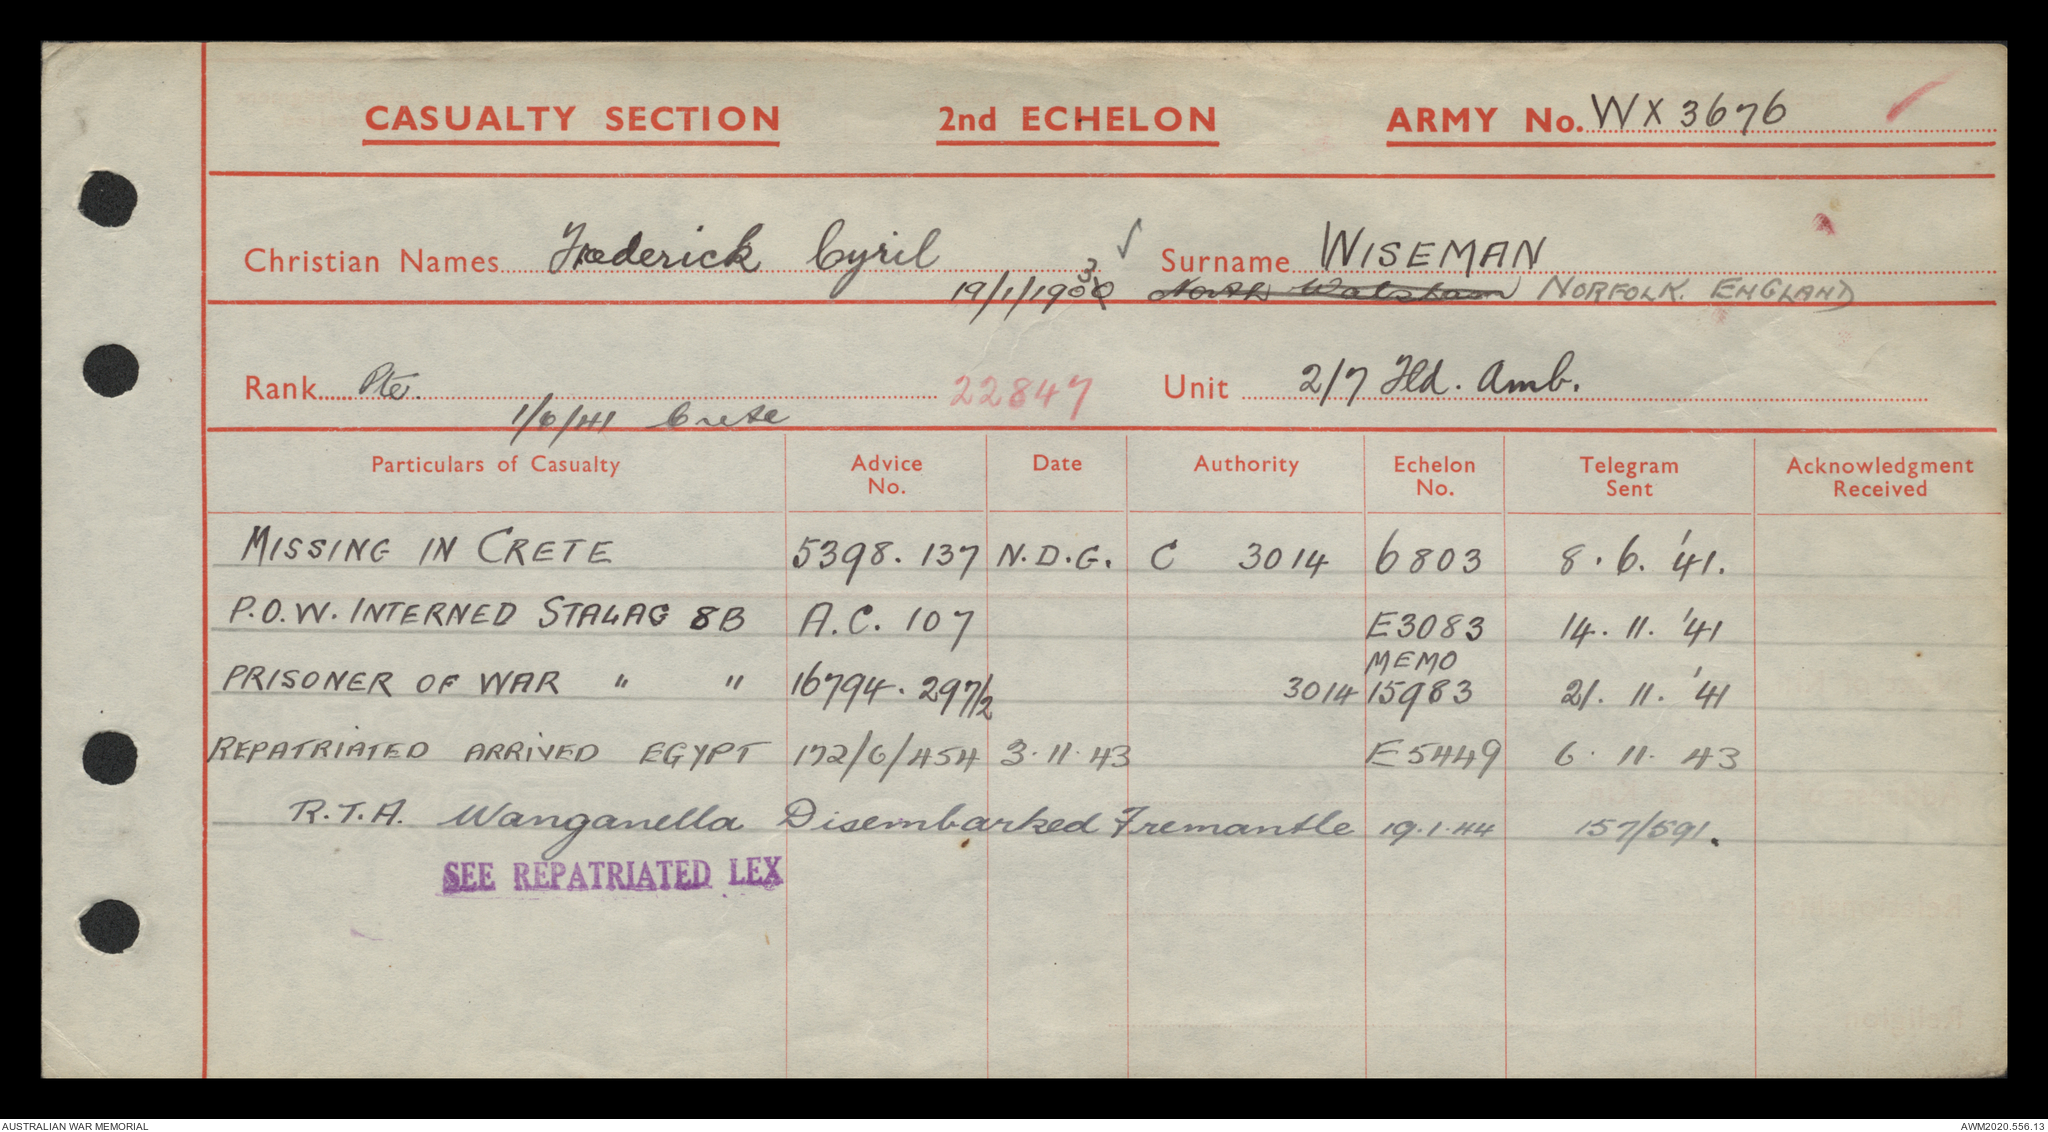 CASUALTY SECTION 2nd ECHELON ARMY No. WX3676
Christian Names Frederick Cyril Surname WISEMAN
19/1/1903 North Walsham NORFOLK. ENGLAND
Rank Pte. 22847 Unit 2/7 Fld. Amb.
1/6/41 Crete
Particulars of Casualty Advice No. Date Authority Echelon No. Telegram Sent Acknowledgment Received
MISSING IN CRETE 5398. 137 N.D.G. C 3014 6803 8. 6. '41.
P.O.W. INTERNED STALAG 8B A.C. 107 E3083 14. 11. '41
MEMO
PRISONER OF WAR " " 16794. 297/2 3014 15983 21. 11. '41
REPATRIATED ARRIVED EGYPT 172/6/454 3.11.43 E5449 6. 11. 43
R.T.A. Wanganella Disembarked Fremantle 19.1.44 157/591.
SEE REPATRIATED LEX
AUSTRALIAN WAR MEMORIAL AWM2020.556.13